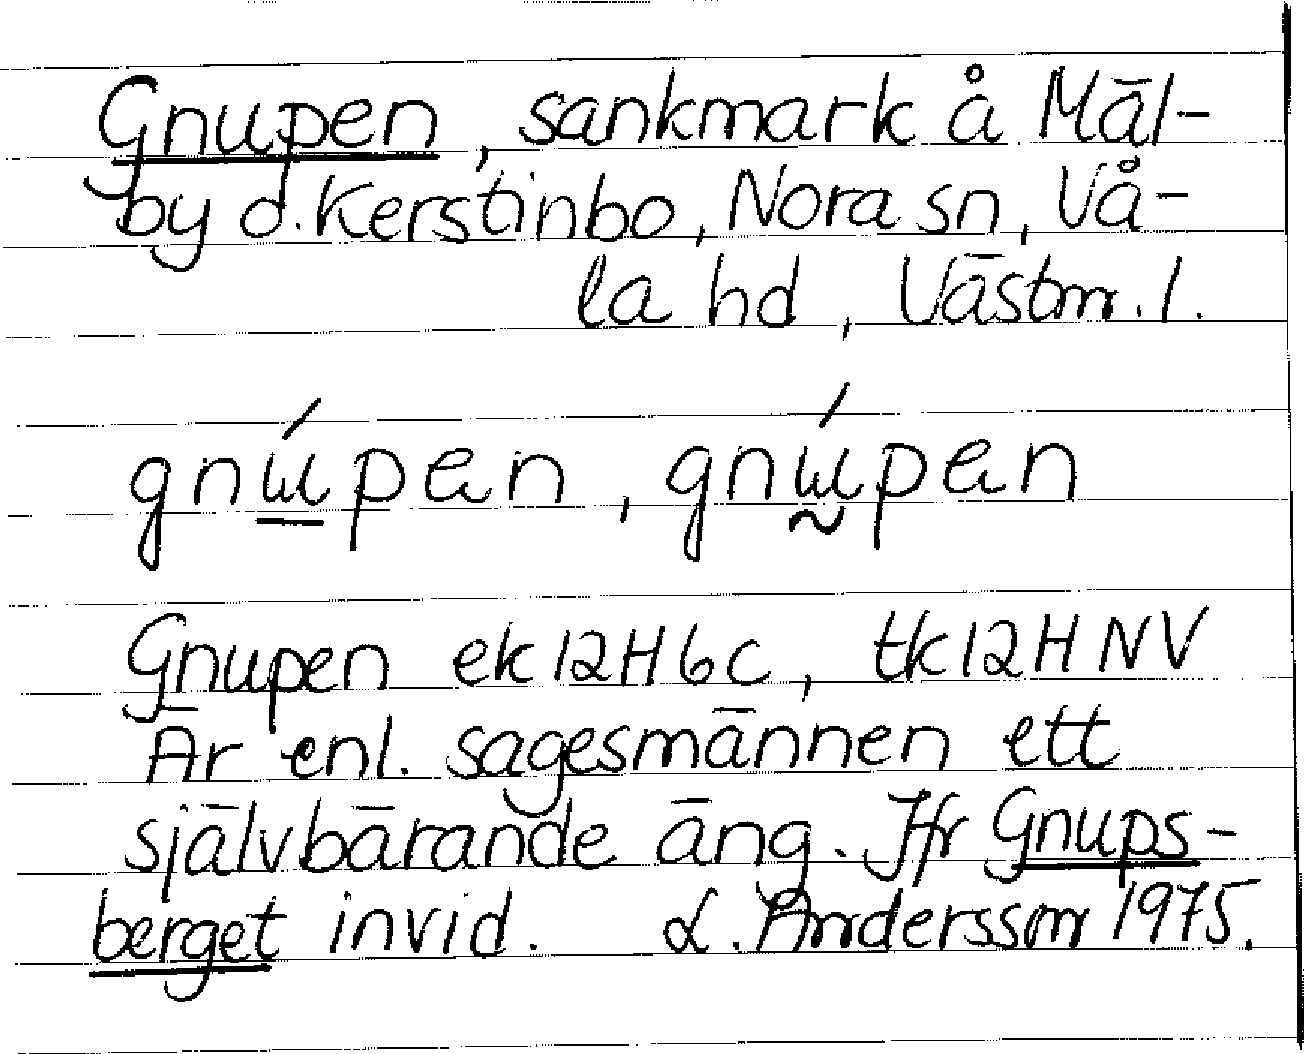 Gnupen, sankmark å Mäl-
by d. Kerstinbo, Nora sn, Vå-
la hd, Västm. l.
Gnupen ek 12H6c, tk 12H NV
Är enl. sagesmännen ett
självbärande äng. Jfr Gnups-
berget invid. L. Andersson 1975.